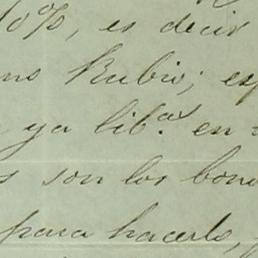 10%, es decir
Rubio;
ya lib.ᵃˢ en
son los bon
para hacerlo,